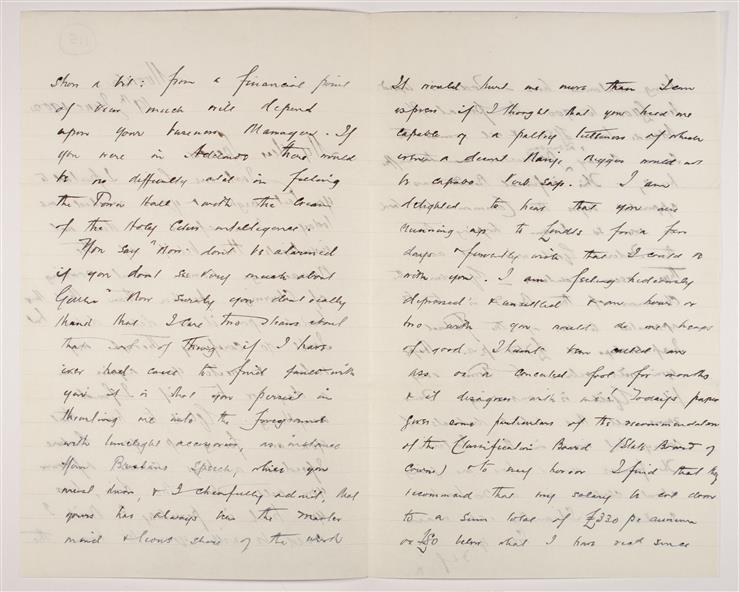 show a bit: from a financial point
of view much will depend
upon your business Manager. If
you were in Adelaide there would
be no difficulty at all in filling
the Town Hall with the cream
of the Holy City's intelligence.
You say "Now don't be alarmed
if you don't see very much about
Gillen" Now surely you don't really
think that I care two straws about
that sort of thing; if I have
ever had cause to find fault with
you it is that you persist in
thrusting me into the foreground
with limelight accessories, as instance
your Brisbane Speech when you
must know, & I cheerfully admit, that
yours has always been the master
mind & lions share of the work
It would hurt me more than I can
express if I thought that you held me
capable of a paltry littleness of which
even a decent
would not
be capable
I am
delighted to hear that you are
running up to
for a few
days & fervently wish that I could be
with you. I am feeling hideously
depressed & unsettled & an hour or
two with you would do me heaps
of good. I haven't been called an
ass or a conceited fool for months
& it disagrees with me! Todays paper
gives some particulars of the recommendation
of the Classification Board (State Board of
) & to my horror I find that they
recommend that my salary be cut down
to a sum total of £330 per annum
or £50 below what I have recd since